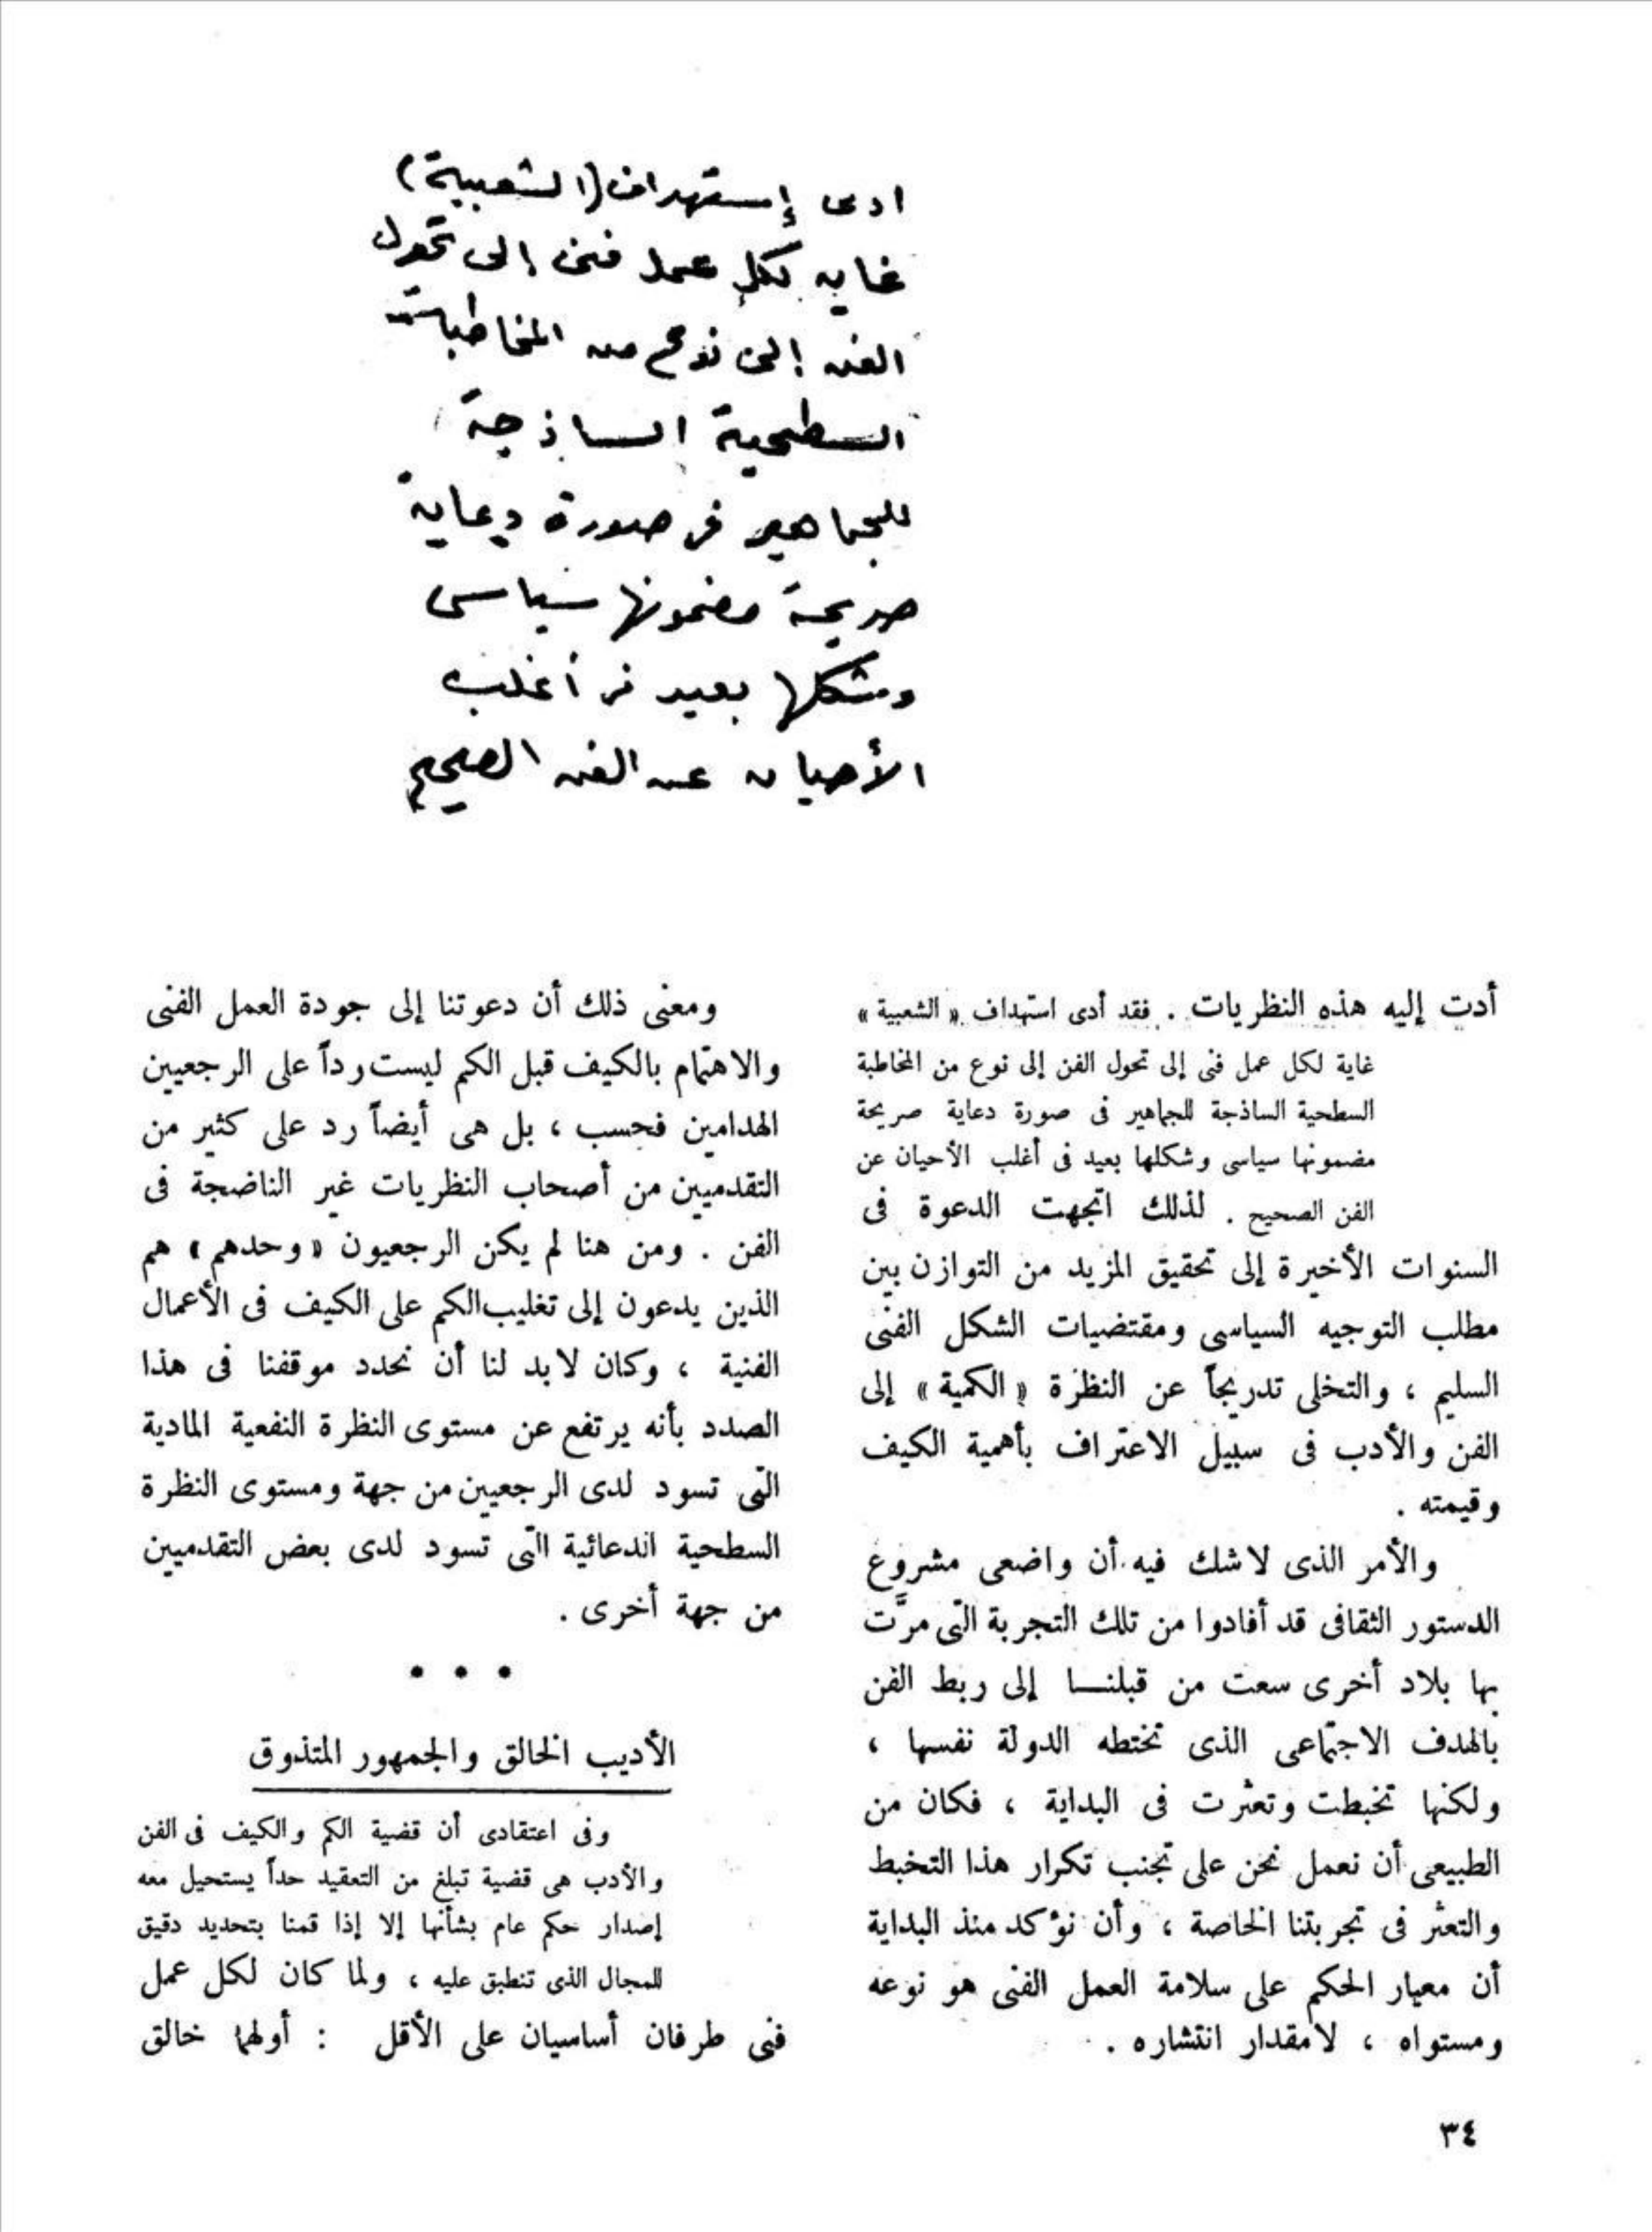 ادى إستهداف (الشعبية)
غاية لكل عمل فنى إلى تحول
الفن إلى نوع من المخاطبة
السطحية الساذجة
للجماهير فى صورة دعاية
صريحة مضمونها سياسى
وشكلها بعيد فى أغلب
الأحيان عن الفن الصحيح
أدت إليه هذه النظريات . فقد أدى استهداف « الشعبية »
غاية لكل عمل فنى إلى تحول الفن إلى نوع من المخاطبة
السطحية الساذجة للجماهير فى صورة دعاية صريحة
مضمونها سياسى وشكلها بعيد فى أغلب الأحيان عن
الفن الصحيح . لذلك اتجهت الدعوة فى
السنوات الأخيرة إلى تحقيق المزيد من التوازن بين
مطلب التوجيه السياسى ومقتضيات الشكل الفنى
السليم ، والتخلى تدريجاً عن النظرة « الكمية » إلى
الفن والأدب فى سبيل الاعتراف بأهمية الكيف
وقيمته .
والأمر الذى لا شك فيه أن واضعى مشروع
الدستور الثقافى قد أفادوا من تلك التجربة التى مرَّت
بها بلاد أخرى سعت من قبلنــا إلى ربط الفن
بالهدف الاجتماعى الذى تختطه الدولة نفسها ،
ولكنها تخبطت وتعثرت فى البداية ، فكان من
الطبيعى أن نعمل نحن على تجنب تكرار هذا التخبط
والتعثر فى تجربتنا الخاصة ، وأن نؤكد منذ البداية
أن معيار الحكم على سلامة العمل الفنى هو نوعه
ومستواه ، لا مقدار انتشاره .
ومعنى ذلك أن دعوتنا إلى جودة العمل الفنى
والاهتمام بالكيف قبل الكم ليست رداً على الرجعيين
الهدامين فحسب ، بل هى أيضاً رد على كثير من
التقدميين من أصحاب النظريات غير الناضجة فى
الفن . ومن هنا لم يكن الرجعيون « وحدهم » هم
الذين يدعون إلى تغليب الكم على الكيف فى الأعمال
الفنية ، وكان لابد لنا أن نحدد موقفنا فى هذا
الصدد بأنه يرتفع عن مستوى النظرة النفعية المادية
التى تسود لدى الرجعيين من جهة ومستوى النظرة
السطحية الدعائية التى تسود لدى بعض التقدميين
من جهة أخرى .
• • •
الأديب الخالق والجمهور المتذوق
وفى اعتقادى أن قضية الكم والكيف فى الفن
والأدب هى قضية تبلغ من التعقيد حداً يستحيل معه
إصدار حكم عام بشأنها إلا إذا قمنا بتحديد دقيق
للمجال الذى تنطبق عليه ، ولما كان لكل عمل
فنى طرفان أساسيان على الأقل : أولهما خالق
٣٤